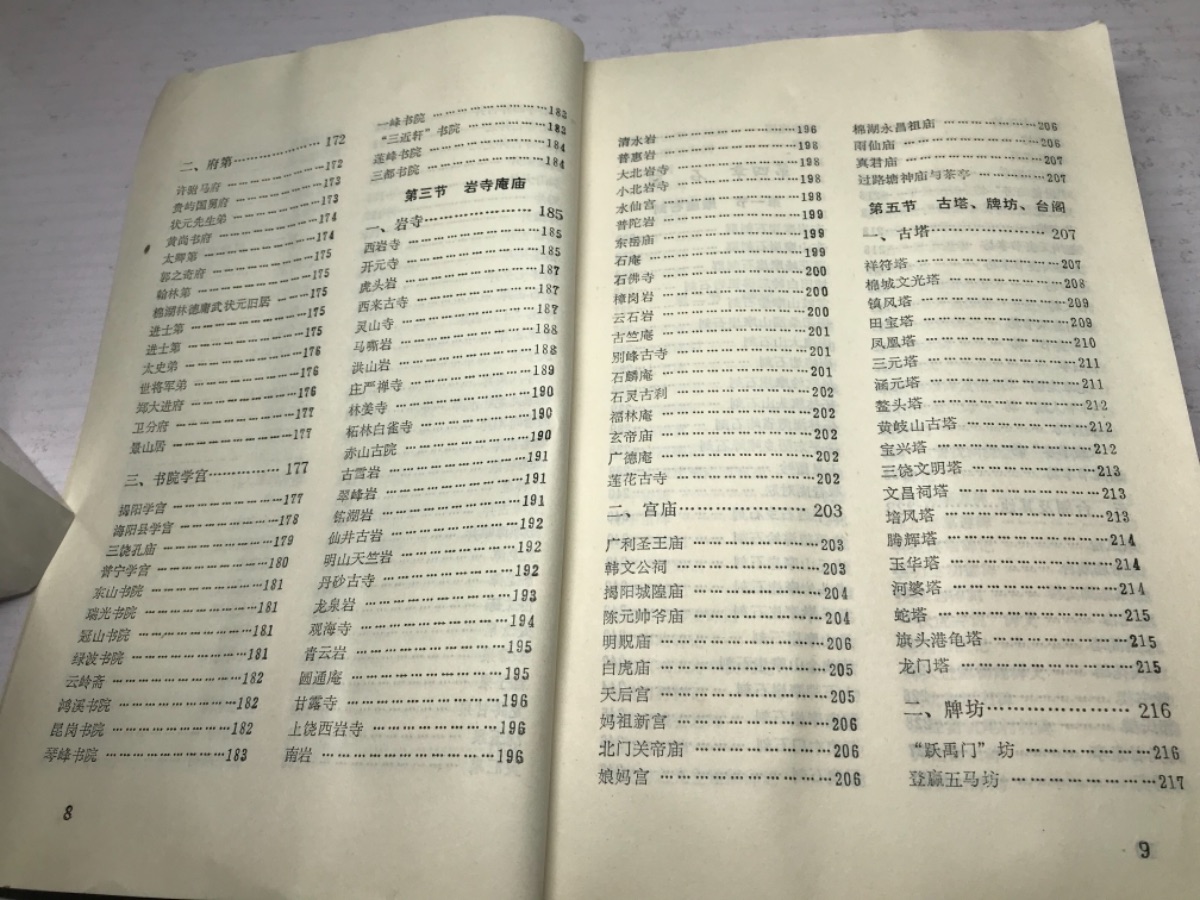 二、府第…………………172
许驸马府…………………172
贵屿国舅府…………………173
状元先生弟…………………173
黄尚书府…………………174
太卿第…………………174
郭之奇府…………………175
翰林第…………………175
棉湖林德庸武状元旧居…………………175
进士第…………………175
进士第…………………175
太史弟…………………176
世将军弟…………………176
郑大进府…………………176
卫分府…………………177
景山居…………………177
三、书院学宫……………177
揭阳学宫…………………177
海阳县学宫…………………178
三饶孔庙…………………179
普宁学宫…………………180
东山书院…………………181
瑞光书院…………………181
冠山书院…………………181
绿波书院…………………181
云岭斋…………………182
鸿溪书院…………………182
昆岗书院…………………182
琴峰书院…………………183
一峰书院…………………183
“三近轩”书院…………………183
莲峰书院…………………184
三都书院…………………184
第三节 岩寺庵庙
一、岩寺…………………185
西岩寺…………………185
开元寺…………………185
虎头岩…………………187
西来古寺…………………187
灵山寺…………………187
马嘶岩…………………188
洪山岩…………………188
庄严禅寺…………………189
林美寺…………………190
柘林白雀寺…………………190
赤山古院…………………190
古雪岩…………………191
翠峰岩…………………191
铭湖岩…………………191
仙井古岩…………………192
明山天竺岩…………………192
丹砂古寺…………………192
龙泉岩…………………193
观海寺…………………194
青云岩…………………195
圆通庵…………………195
甘露寺…………………196
上饶西岩寺…………………196
南岩…………………196
8
清水岩…………………196
普惠岩…………………198
大北岩寺…………………198
小北岩寺…………………198
水仙宫…………………198
普陀岩…………………199
东岳庙…………………199
石庵…………………199
石佛寺…………………200
樟岗岩…………………200
云石岩…………………200
古竺庵…………………201
别峰古寺…………………201
石麟庵…………………201
石灵古刹…………………202
福林庵…………………202
玄帝庙…………………202
广德庵…………………202
莲花古寺…………………202
二、宫庙…………………203
广利圣王庙…………………203
韩文公祠…………………203
揭阳城隍庙…………………204
陈元帅爷庙…………………204
明贶庙…………………206
白虎庙…………………205
天后宫…………………205
妈祖新宫…………………206
北门关帝庙…………………206
娘妈宫…………………206
棉湖永昌祖庙…………………206
雨仙庙…………………206
真君庙…………………207
过路塘神庙与茶亭…………………207
第五节 古塔、牌坊、台阁
一、古塔…………………207
祥符塔…………………207
棉城文光塔…………………208
镇风塔…………………209
田宝塔…………………209
凤凰塔…………………210
三元塔…………………211
涵元塔…………………211
鳌头塔…………………212
黄岐山古塔…………………212
宝兴塔…………………212
三饶文明塔…………………213
文昌祠塔…………………213
培风塔…………………213
腾辉塔…………………214
玉华塔…………………214
河婆塔…………………214
蛇塔…………………215
旗头港龟塔…………………215
龙门塔…………………215
二、牌坊…………………216
“跃禹门”坊…………………216
登瀛五马坊…………………217
9